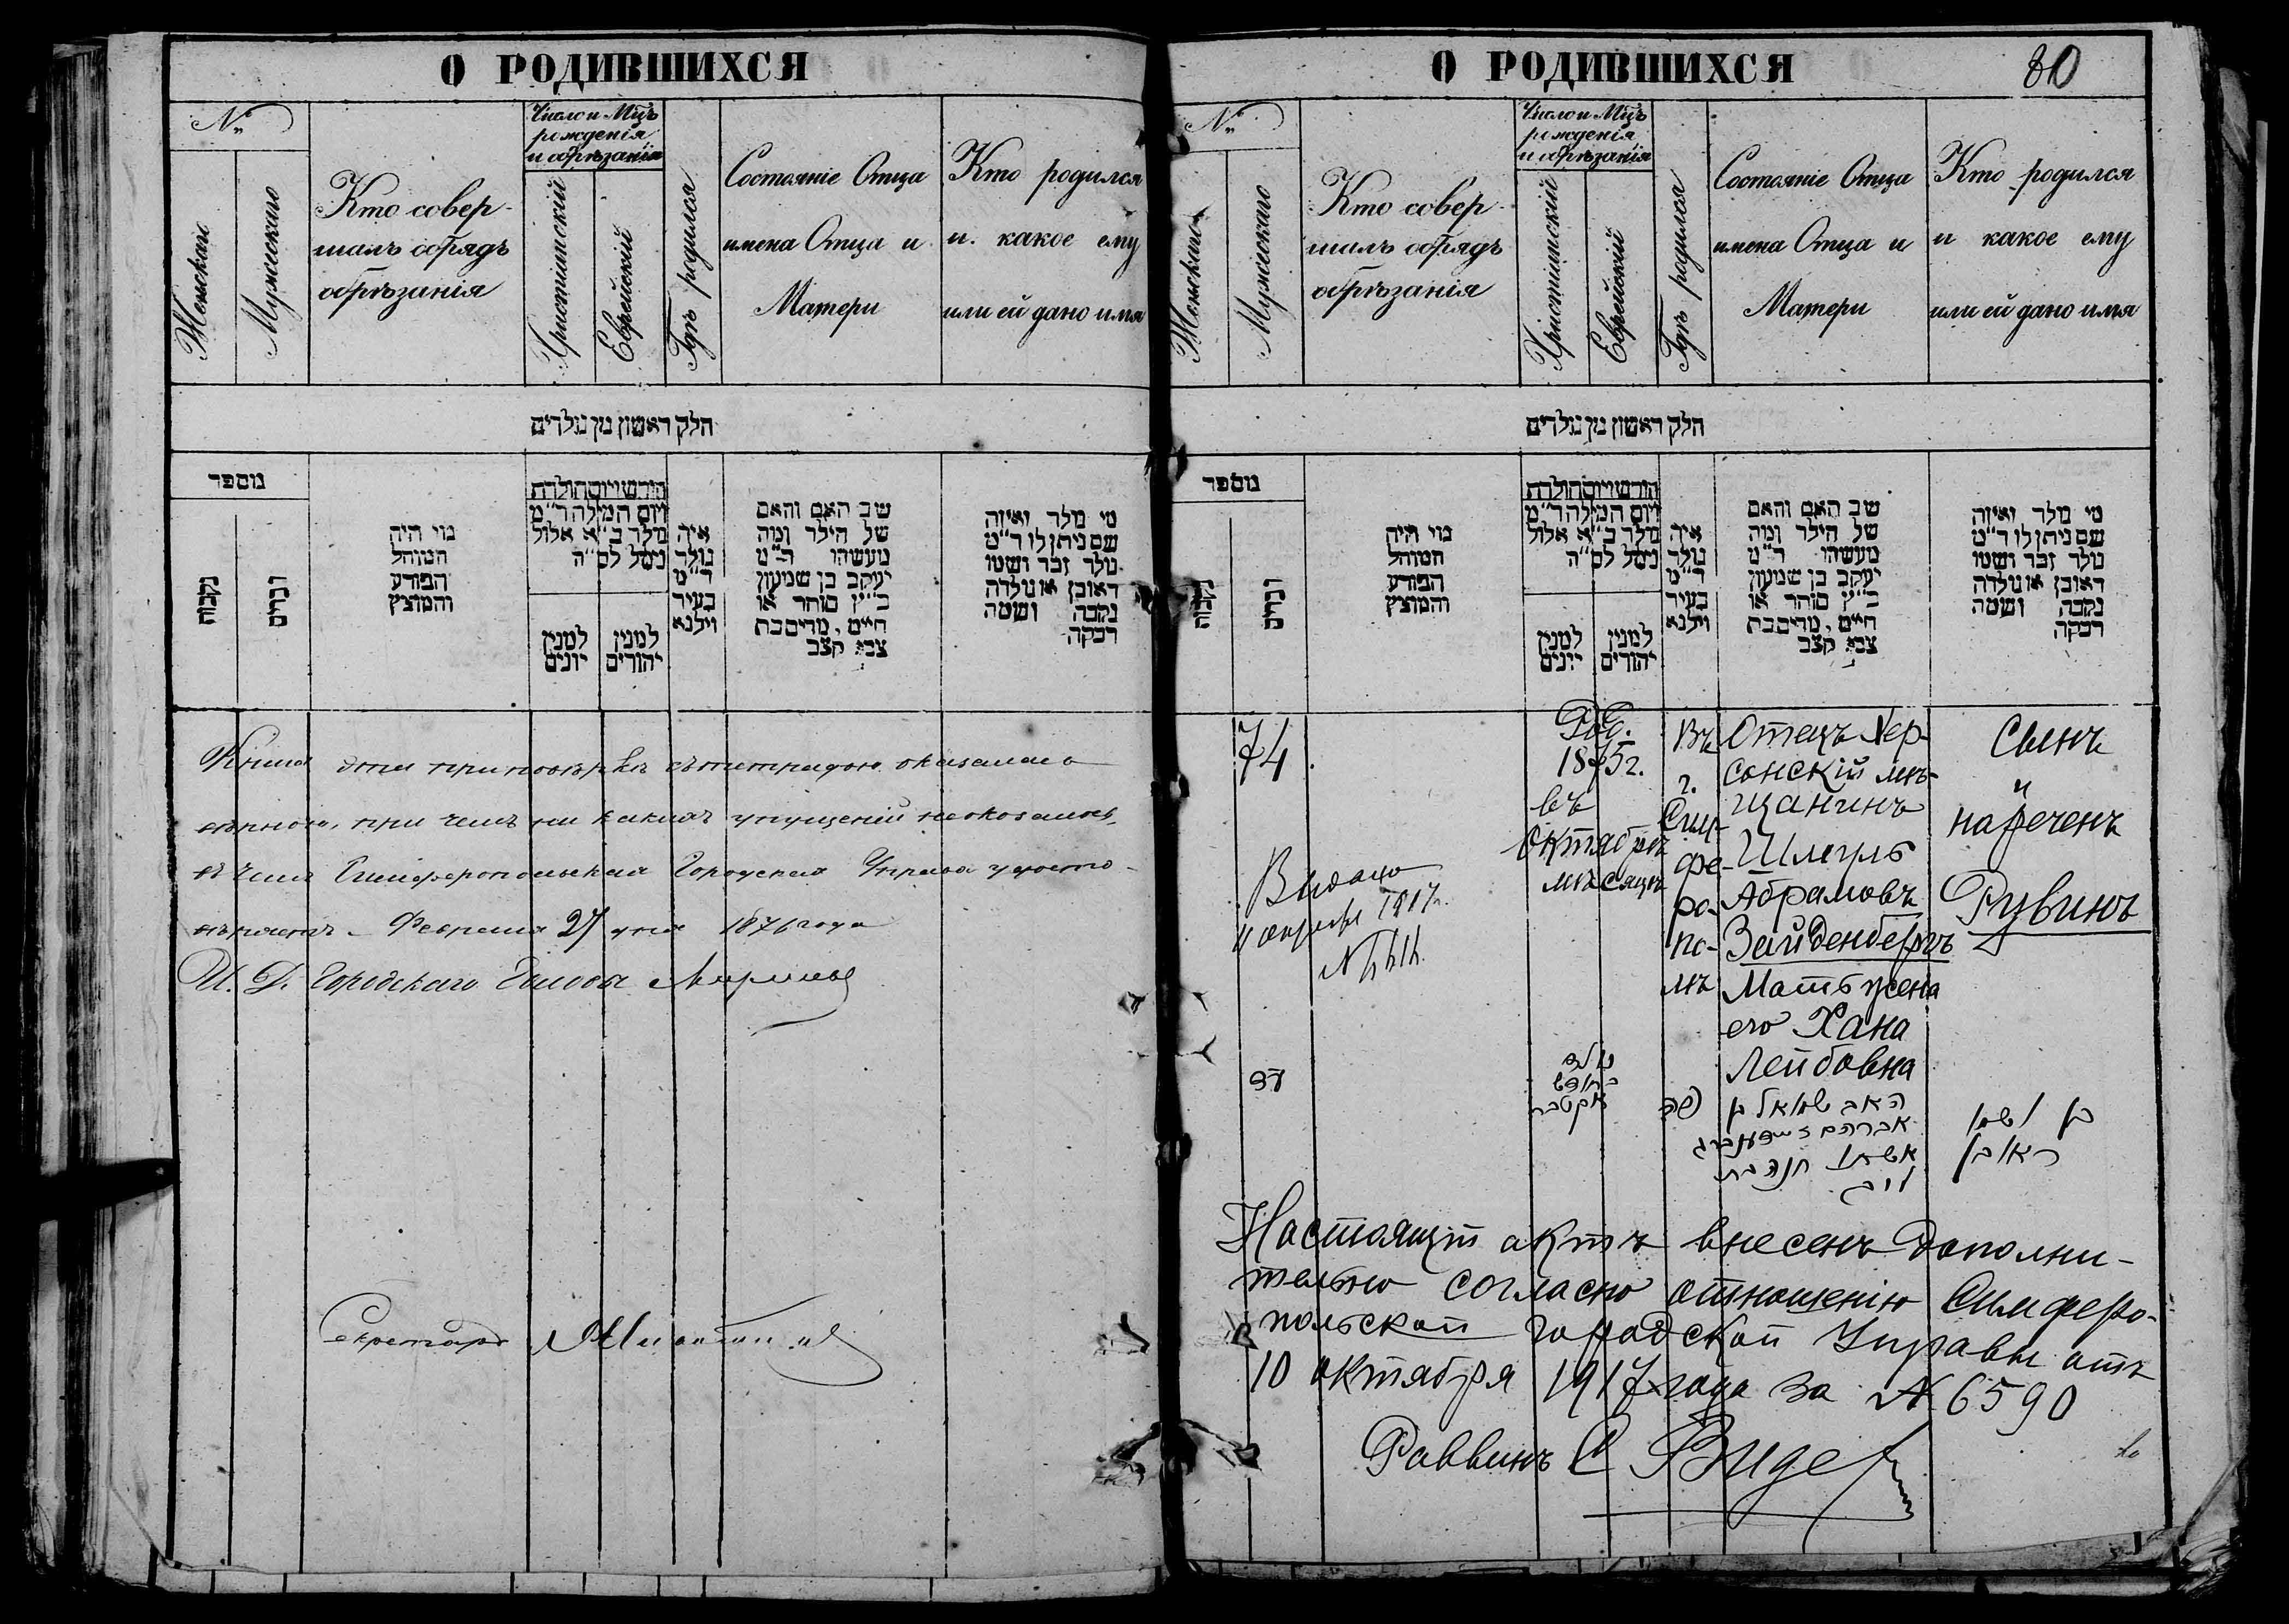 О РОДИВШИХСЯ
№
Женскаго
Мужескаго
Кто совер-
шалъ обрядъ
обрѣзанія
Число и Мѣцъ
рожденія
и обрѣзанія
Христіанскій
Еврейскій
Гдѣ родился
Состояніе Отца
имена Отца и
Матери
Кто родился
и какое ему
или ей дано имя
חלק ראשון מן נולדים
מספר
נקבות
זכרים
מי היה
המוהל
הפורע
והמוצץ
חודש ויום הולדת
ויום המילה ר״מ
מלך ב״א אלול
למנין
יונים
למנין
יהודים
איה
נולד
ר״מ
בעיר
וילנא
שב האם והאם
של הילד ומה
מעשהו ר״מ
יעקב בן שמעון
כ״ץ סוחר או
חיים, מרים בת
צבי קצב
מי מלד ואיזה
שם ניתן לו ר״מ
נולד זכר ושמו
ראובן או נולדה
נקבה ושמה
רבקה
Книга эта при повѣркѣ съ тетрадью оказалась
вѣрною, при чемъ ни какихъ упущеній не оказалось,
въ чемъ Симферопольская Городская Управа удосто-
вѣряетъ. Февраля 27 дня 1876 года
И. Д. Городскаго Головы
Секретарь
О РОДИВШИХСЯ
80
№
Женскаго
Мужескаго
Кто совер-
шалъ обрядъ
обрѣзанія
Число и Мѣцъ
рожденія
и обрѣзанія
Христіанскій
Еврейскій
Гдѣ родился
Состояніе Отца
имена Отца и
Матери
Кто родился
и какое ему
или ей дано имя
חלק ראשון מן נולדים
מספר
נקבות
זכרים
מי היה
המוהל
הפורע
והמוצץ
חודש ויום הולדת
ויום המילה ר״מ
מלך ב״א אלול
למנין
יונים
למנין
יהודים
איה
נולד
ר״מ
בעיר
וילנא
שב האם והאם
של הילד ומה
מעשהו ר״מ
יעקב בן שמעון
כ״ץ סוחר או
חיים, מרים בת
צבי קצב
מי מלד ואיזה
שם ניתן לו ר״מ
נולד זכר ושמו
ראובן או נולדה
נקבה ושמה
רבקה
74
Выдано
11 октября 1917г.
1875г.
въ
Октябрѣ
мѣсяцѣ
Въ
г.
Сим-
фе-
ро-
по-
лѣ
Отецъ Хер-
сонскій мѣ-
щанинъ
Шмуль
Абрамовъ
Зайденбергъ
Мать жена
его Хана
Лейбовна
Сынъ
и
нареченъ
Рувинъ
עד
נולד
בחודש
אקטבר
פה
האב שמואל בן
אברהם זיידענברג
אשתו חנה בת
ליב
בן ושמו
ראובן
Настоящій актъ внесенъ дополни-
тельно согласно отношенію Симферо-
польской городской Управы отъ
10 октября 1917 года за № 6590
Раввинъ